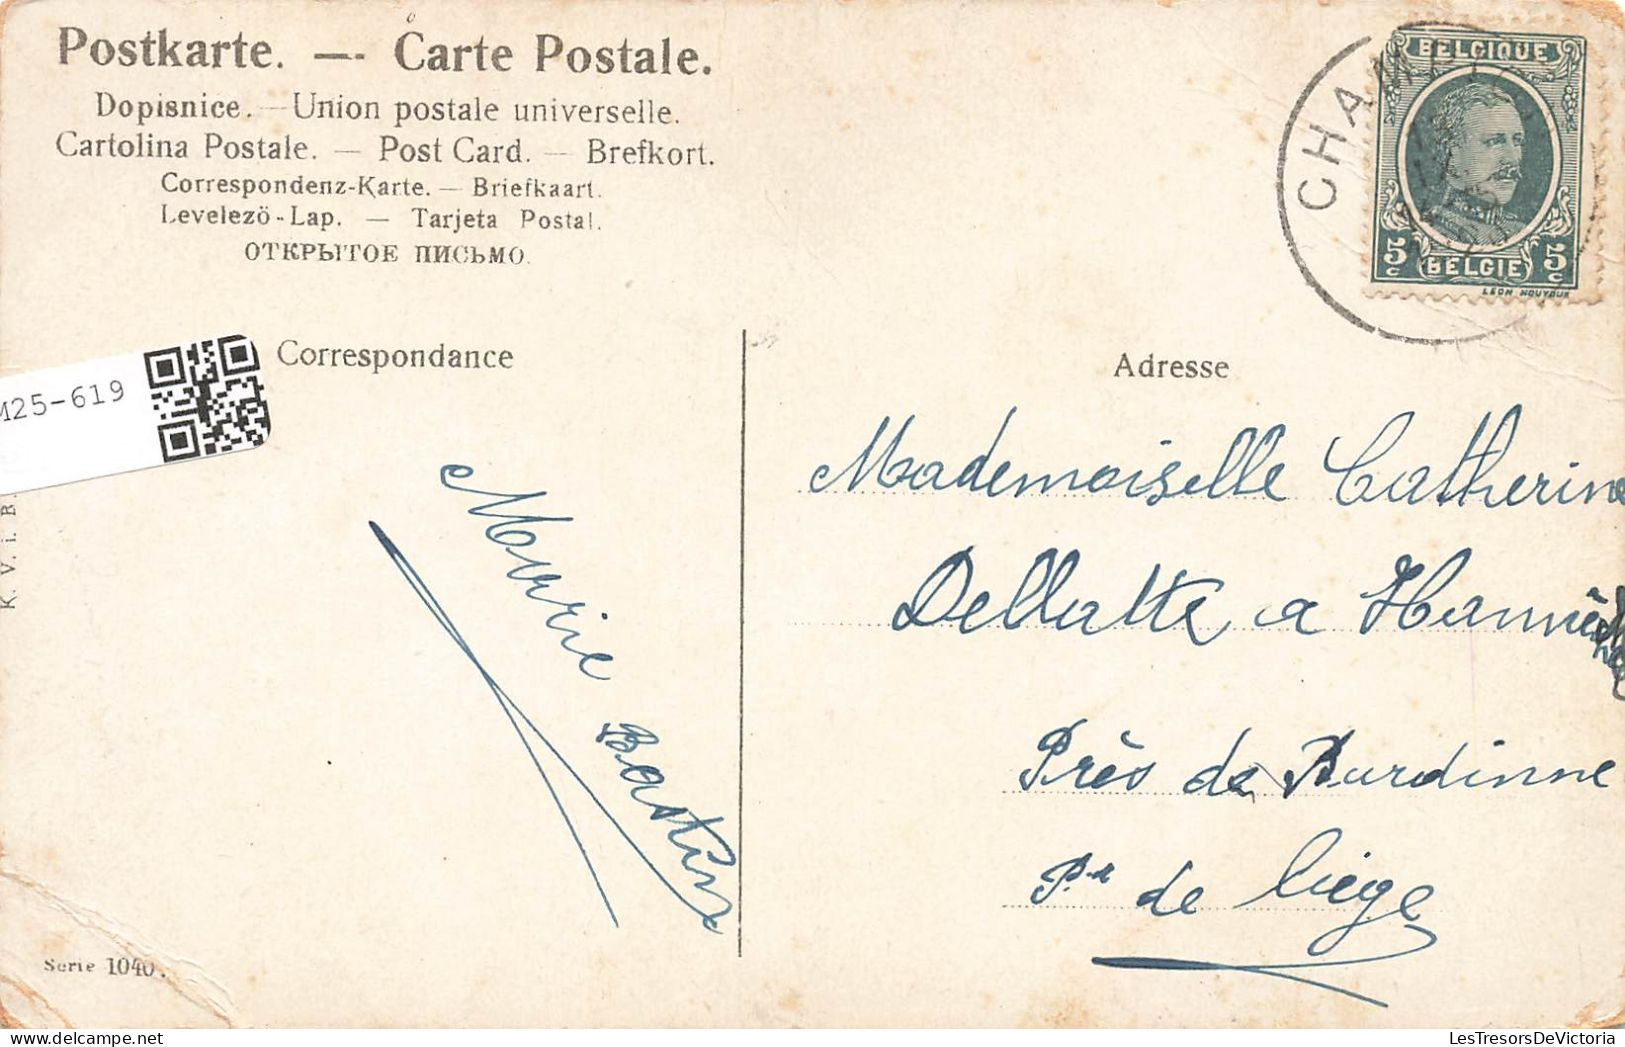 Postkarte. — Carte Postale.
Dopisnice. — Union postale universelle.
Cartolina Postale. — Post Card. — Brefkort.
Correspondenz-Karte. — Briefkaart.
Levelezö-Lap. — Tarjeta Postal.
ОТКРЫТОЕ ПИСЬМО.
BELGIQUE
5c 5c
BELGIE
LEON HOUYOUX
M25-619
Correspondance
Marie Bastin
K. V. i. B.
Serie 1040.
Adresse
Mademoiselle Catherine
Dellatte a
Près de Burdinne
Pce de Liège
LesTresorsDeVictoria